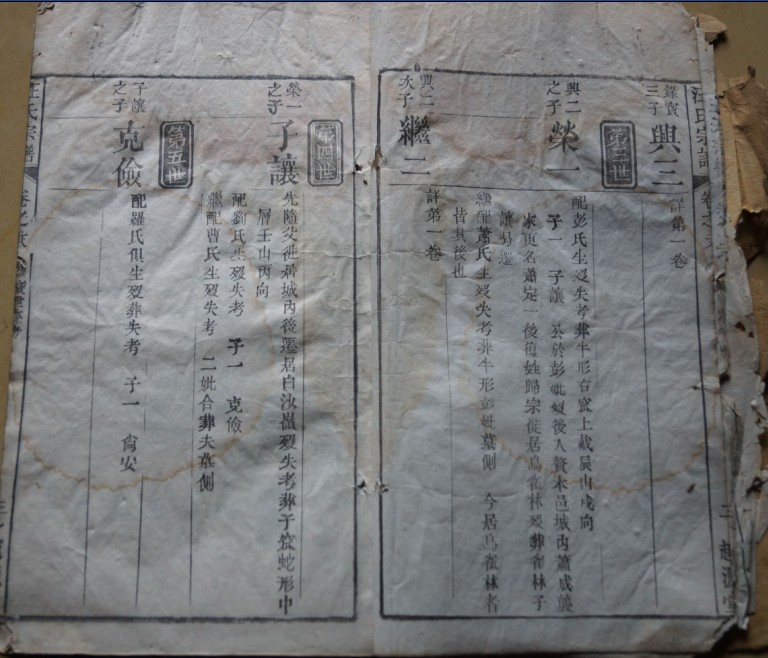 汪氏宗譜
三子
興三
詳第一卷
第三世
興二
之子
榮一
配彭氏生歿失考葬牛形右
上截辰山戌向
子一
子讓
公於彭妣歿後入贅本邑城内蕭
更名蕭定一後復姓歸宗徙居鳥雀林歿葬雀林子
讓另遷
繼配蕭氏生歿失考葬牛形彭妣墓側
今居鳥雀林者
皆其後也
興二
次子
繼二
詳第一卷
第四世
榮一
之子
子讓
先隨父徙居城内後遷居白汝嶺歿失考葬于
蛇形中
層壬山丙向
配劉氏生歿失考
子一
克儉
繼配曹氏生歿失考
二妣合葬夫墓側
第五世
子讓
之子
克儉
配羅氏俱生歿葬失考
子一
尙安
汪氏宗譜